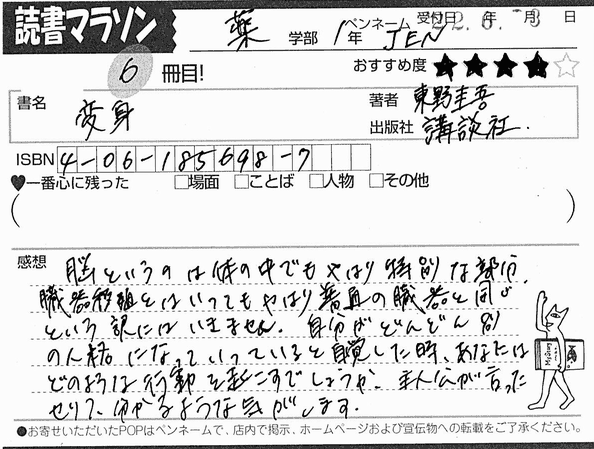 読書マラソン
薬 学部 1年
ペンネーム JEN
受付日 年 月 日
6 冊目!
おすすめ度 ★★★★☆
書名 変身
著者 東野圭吾
出版社 講談社.
ISBN 4-06-185698-7
♥一番心に残った □場面 □ことば □人物 □その他
( )
感想 脳というのは体の中でもやはり特別な部分.
臓器移植とはいってもやはり普通の臓器と同じ
という訳にはいきません. 自分がどんどん別
の人格になっていっていると自覚した時、あなたは
どのような行動を起こすでしょうか. 主人公が言った
セリフ、分かるような気がします.
●お寄せいただいたPOPはペンネームで、店内で掲示、ホームページおよび宣伝物への転載をご了承ください。